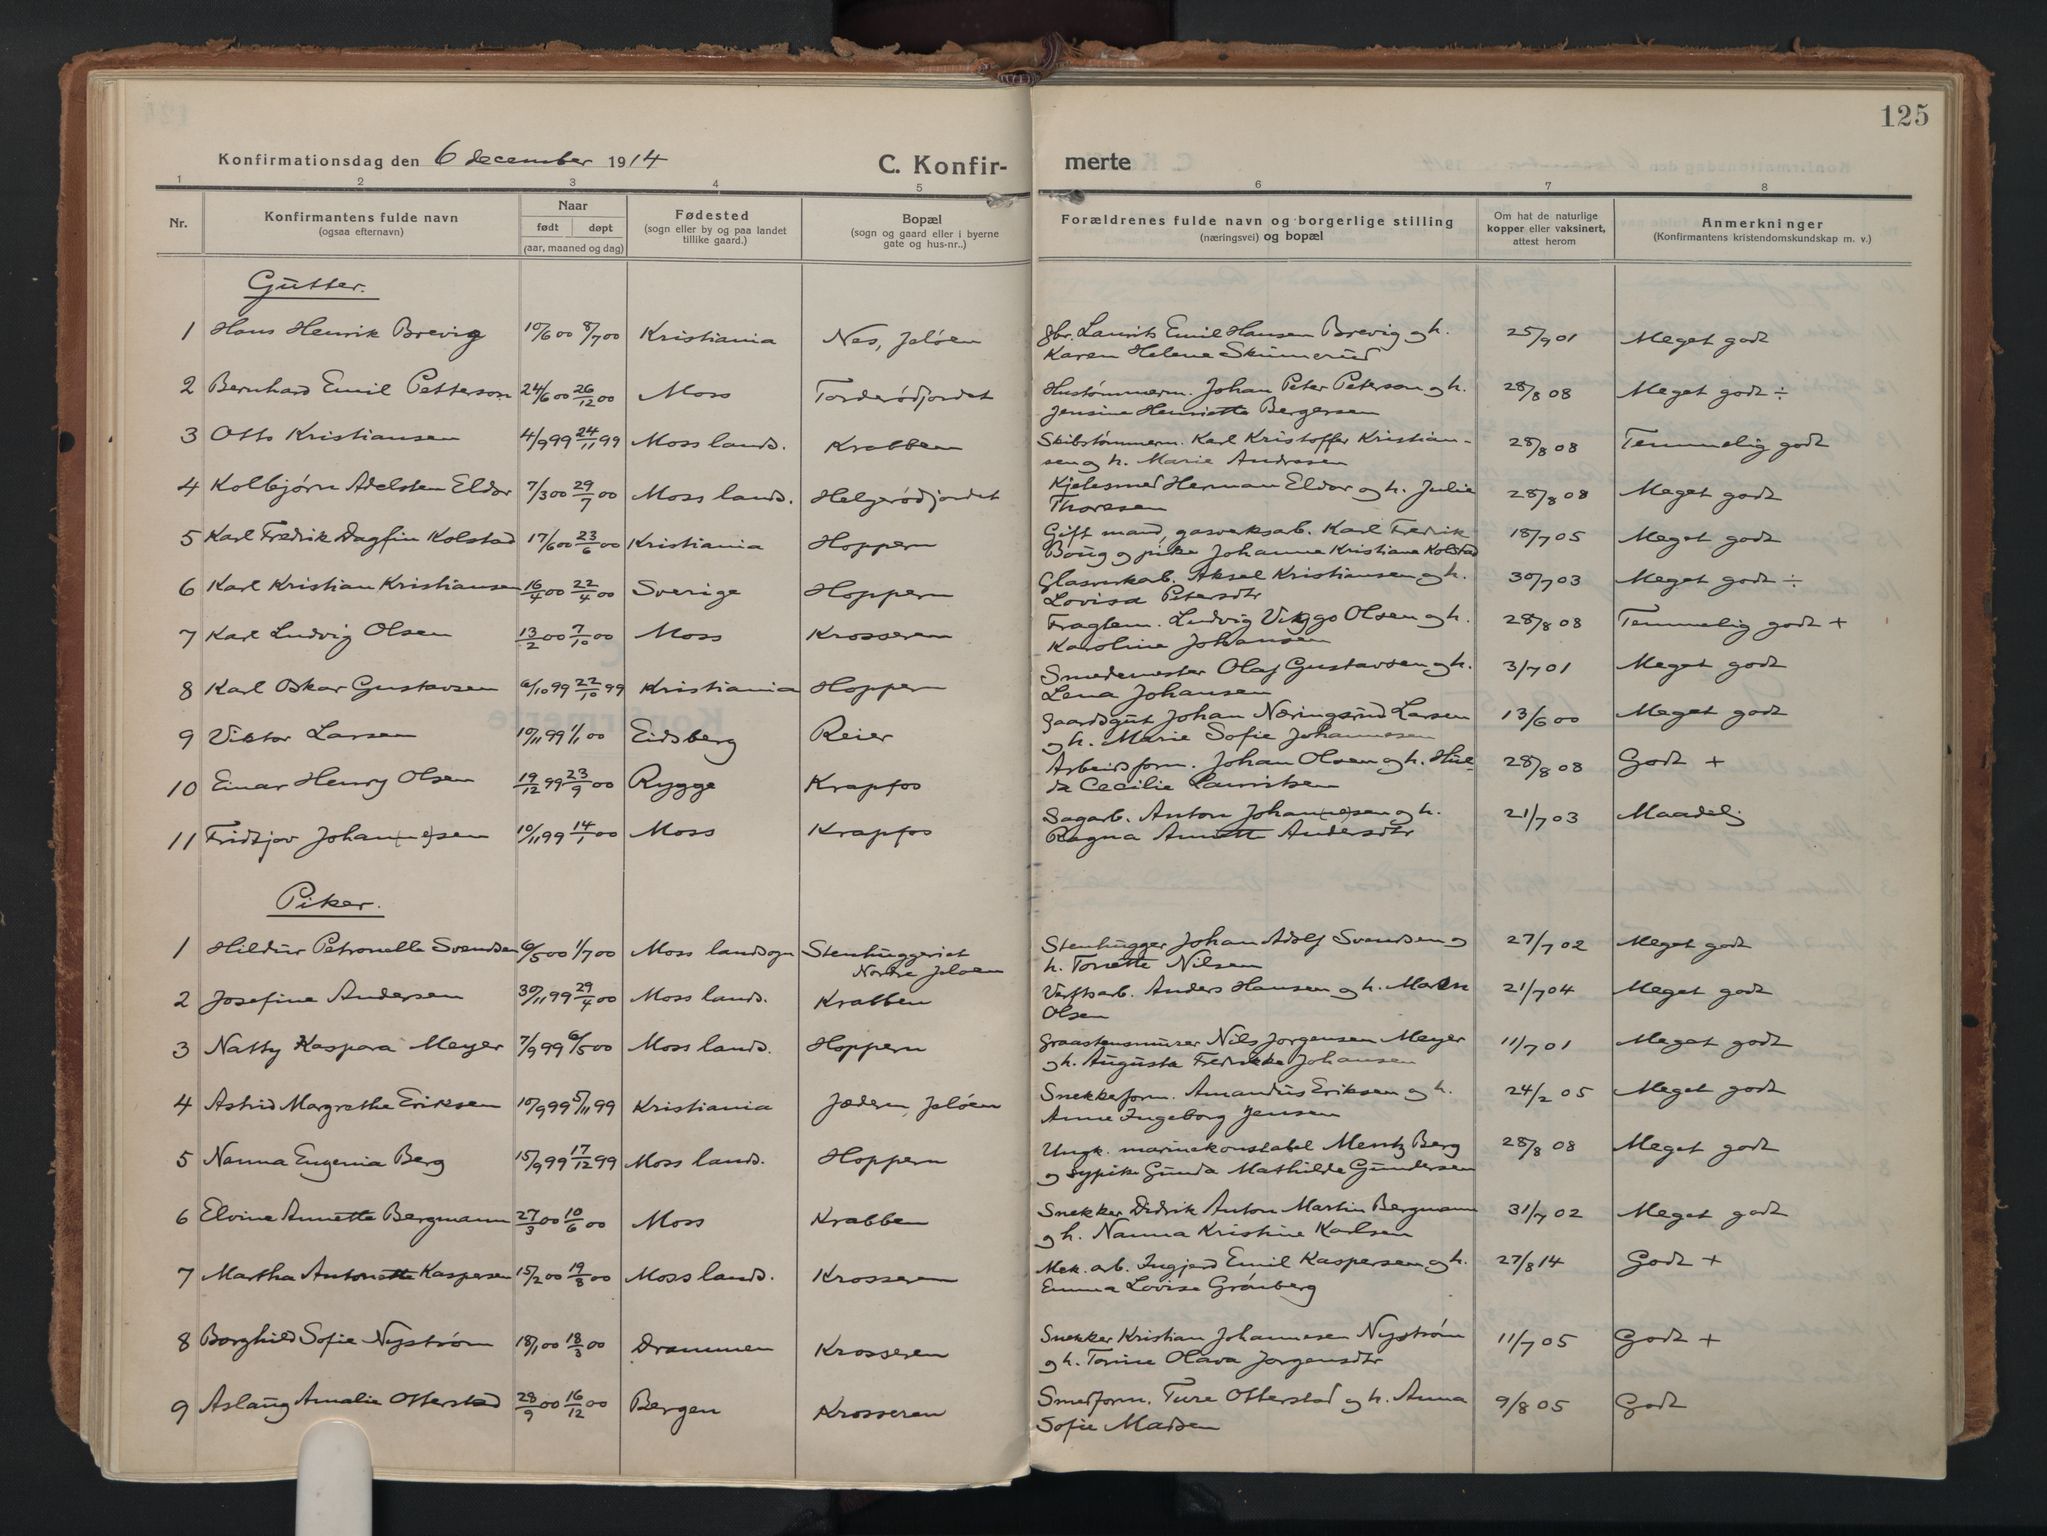 125
Konfirmationsdag den 6 december 1914
C. Konfir- merte
1 2 3 4 5 6 7 8
Nr. Konfirmantens fulde navn (ogsaa efternavn) Naar født døpt (aar, maaned og dag) Fødested (sogn eller by og paa landet tillike gaard.) Bopæl (sogn og gaard eller i byerne gate og hus-nr..) Forældrenes fulde navn og borgerlige stilling (næringsvei) og bopæl Om hat de naturlige kopper eller vaksinert, attest herom Anmerkninger (Konfirmantens kristendomskundskap m. v.)
Gutter.
1 Hans Henrik Brevig 10/6 00 8/7 00 Kristiania Nes, Jeløen Gbr. Laurits Emil Hansen Brevig og h. 25/9 01 Meget godt
Karen Helene Skumerud
2 Bernhard Emil Petterson 24/6 00 26/12 00 Moss Torderødjordet Hustømmerm. Johan Peter Peterson og h. 28/8 08 Meget godt ÷
Jensine Henriette Bergersen
3 Otto Kristiansen 4/9 99 24/11 99 Moss lands. Krabben Skibstømmerm. Karl Kristoffer Kristian- 28/8 08 Temmelig godt
sen og h. Marie Andresen
4 Kolbjørn Adelsten Eldor 7/3 00 29/7 00 Moss lands. Helgerødjordet Kjelesmed Herman Eldor og h. Julie 28/8 08 Meget godt
Thoresen
5 Karl Fredrik Dagfin Kolstad 17/6 00 23/6 00 Kristiania Hoppern Gift mand, gasverksarb. Karl Fredrik 18/7 05 Meget godt
Boug og pike Johanne Kristiane Kolstad
6 Karl Kristian Kristiansen 16/4 00 22/4 00 Sverige Hoppern Glasverkab. Aksel Kristiansen og h. 30/7 03 Meget godt ÷
Lovisa Petersdtr
7 Karl Ludvig Olsen 13/2 00 7/10 00 Moss Krosseren Fragtem. Ludvig Viggo Olsen og h. 28/8 08 Temmelig godt +
Karoline Johansen
8 Karl Oskar Gustavsen 6/10 99 22/10 99 Kristiania Hoppern Smedemester Olaf Gustavsen og h. 3/7 01 Meget godt
Lena Johansen
9 Viktor Larsen 10/11 99 1/1 00 Eidsberg Reier Gaardsgut Johan Næringsrud Larsen 13/6 00 Meget godt
og h. Marie Sofie Johannesen
10 Einar Henry Olsen 19/12 99 23/9 00 Rygge Krapfos Arbeidsform. Johan Olsen og h. Hul- 28/8 08 Godt +
da Cecilie Lauritsen
11 Fridtjov Johan(ne)sen 10/11 99 14/1 00 Moss Krapfos Sagarb. Anton Johan(ne)sen og h. 21/7 03 Maadelig
Ragna Annette Andersdtr
Piker.
1 Hildur Petronelle Svendsen 6/5 00 1/7 00 Moss landsogn Stenhuggeriet Nordre Jeløen Stenhugger Johan Adolf Svendsen og 27/7 02 Meget godt
h. Tonette Nilsen
2 Josefine Andersen 30/11 99 29/4 00 Moss lands. Krabben Verftsarb. Anders Hansen og h. Maren 21/7 04 Meget godt
Olsen
3 Natty Kaspara Meyer 7/9 99 6/5 00 Moss lands. Hoppern Graastensmurer Nils Jorgensen Meyer 11/7 01 Meget godt
og h. Augusta Fredrikke Johansen
4 Astrid Margrethe Eriksen 10/9 99 5/11 99 Kristiania Jædern, Jeløen Snekkerform. Amandus Eriksen og h. 24/2 05 Meget godt
Anne Ingeborg Jensen
5 Nanna Eugenia Berg 15/9 99 17/12 99 Moss lands. Hoppern Ungk. marinekonstabel Mentz Berg 28/8 08 Meget godt
og sypike Gunda Mathilde Gundersen
6 Elvine Annette Bergmann 27/3 00 10/6 00 Moss Krabben Snekker Didrik Anton Martin Bergmann 31/7 02 Meget godt
og h. Nanna Kristine Karlsen
7 Martha Antonette Kaspersen 15/2 00 19/8 00 Moss lands. Krosseren Mek. arb. Ingjerd Emil Kaspersen og h. 27/8 14 Godt +
Emma Lovise Grönberg
8 Borghild Sofie Nystrøm 18/1 00 18/3 00 Drammen Krosseren Snekker Kristian Johannesen Nystrøm 11/7 05 Godt +
og h. Torine Olava Jorgensdtr
9 Aslaug Amalie Otterstad 28/9 00 16/12 00 Bergen Krosseren Smedform. Ture Otterstad og h. Anna 9/8 05 Godt
Sofie Madsen